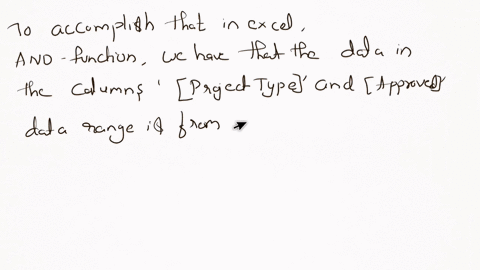 To accomplish that in excel,
AND-function, we have that the data in
the columns '[PrjectType]' and [Approved]
data range is from